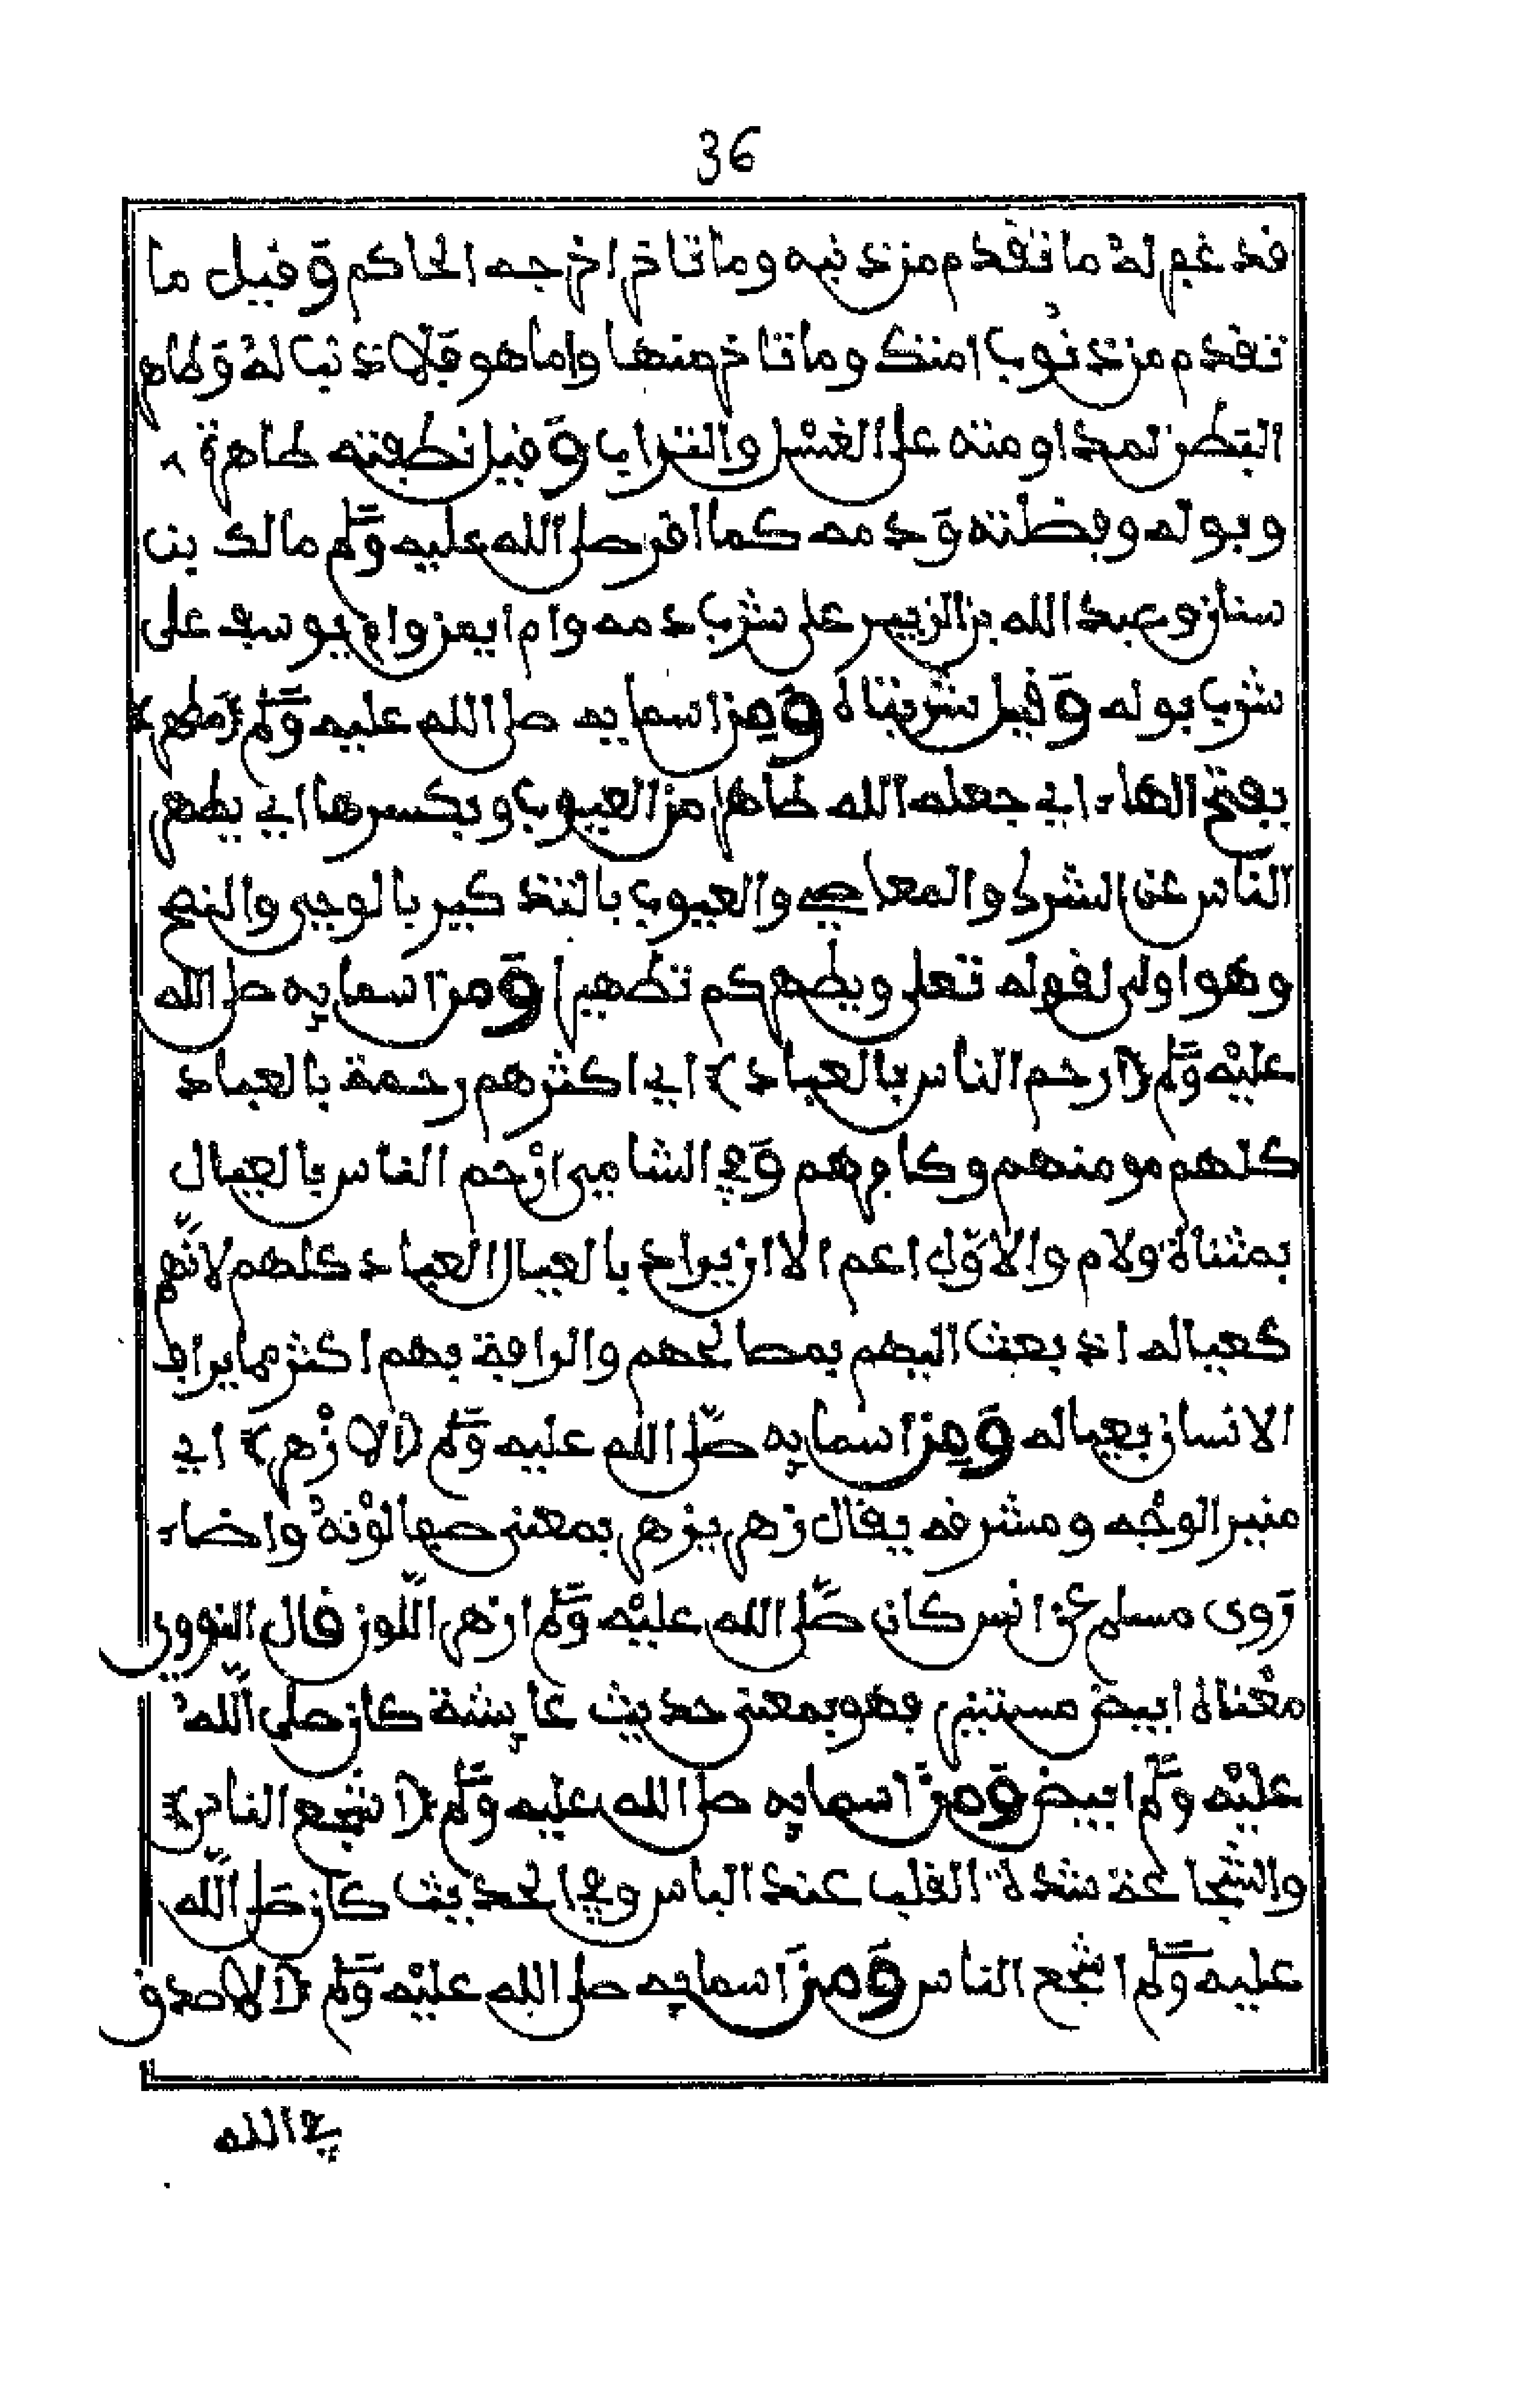 36
قد غفر له ما تقدم من ذنبه وما تاخر اخرجه الحاكم وقيل ما
تقدم من ذنوب امتك وما تاخر منها واما هو فلا ذنب له وطاهر
البطن لمداومته على الغسل والتراب وقيل نطفته طاهرة
وبوله وفضلته ودمه كما اقر صلى الله عليه وسلم مالك بن
سنان وعبد الله بن الزبير على شرب دمه وام ايمن وام يوسف على
شرب بوله وقيل شربتاه ومن اسمايه صلى الله عليه وسلم (مطهر)
بفتح الهاء اي جعله الله طاهرا من العيوب وبكسرها اي يطهر
الناس عن الشرك والمعاصي والعيوب بالتذكير بالوحي والنصح
وهو اولى لقوله تعلى ويطهركم تطهيرا ومن اسمايه صلى الله
عليه وسلم (ارحم الناس بالعباد) اي اكثرهم رحمة بالعباد
كلهم مومنهم وكافرهم وفي الشامي ارحم الناس بالعيال
بمثناة ولام والاول اعم الا ان يراد بالعيال العباد كلهم لانهم
كعياله اذ بعث اليهم بمصالحهم والرافة بهم اكثر مما يراف
الانسان بعياله ومن اسمايه صلى الله عليه وسلم (الازهر) اي
منير الوجه ومشرقه يقال زهر يزهر بمعنى صفا لونه واضاء
روى مسلم عن انس كان صلى الله عليه وسلم ازهر اللون قال النووي
معناه ابيض مستنير وهو بمعنى حديث عايشة كان صلى الله
عليه وسلم ابيض ومن اسمايه صلى الله عليه وسلم (اشجع الناس)
والشجاعة شدة القلب عند الباس وفي الحديث كان صلى الله
عليه وسلم اشجع الناس ومن اسمايه صلى الله عليه وسلم (الاصدق
في الله